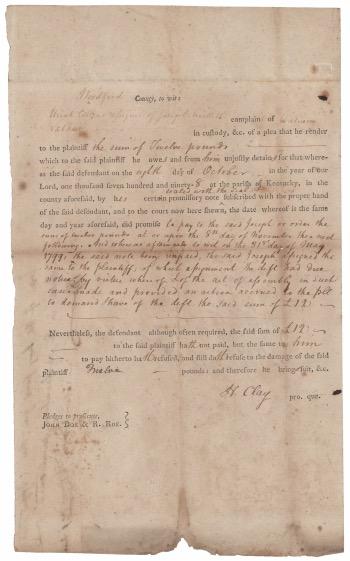 Woodford County, to wit:
complain of William
in custody, &c. of a plea that he render
to the plaintiff the sum of Twelve pounds
which to the said plaintiff he owes and from him unjustly detains for that where-
as the said defendant on the eighth day of October in the year of our
Lord, one thousand seven hundred and ninety-8 at the parish of Kentucky, in the
county aforesaid, by his certain promissory note subscribed with the proper hand
of the said defendant, and to the court now here shewn, the date whereof is the same
day and year aforesaid, did promise to pay to the said Joseph or order the
sum of twelve pounds at or upon the 8th day of November then next
following. And whereas afterwards to wit on the 31st day of May
1799, the said note being unpaid, the said Joseph assigned the
same to the plaintiff, of which assignment the deft had due
notice by virtue whereof & of the act of assembly in such
case made and provided an action accrued to the plt
to demand & have of the deft the said sum of £12
Nevertheless, the defendant although often required, the said sum of £12
to the said plaintiff hath not paid, but the same to him
to pay hitherto hath refused, and still doth refuse to the damage of the said
plaintiff Twelve pounds: and therefore he brings suit, &c.
H. Clay pro. que.
Pledges to prosecute,
JOHN DOE & R. ROE.